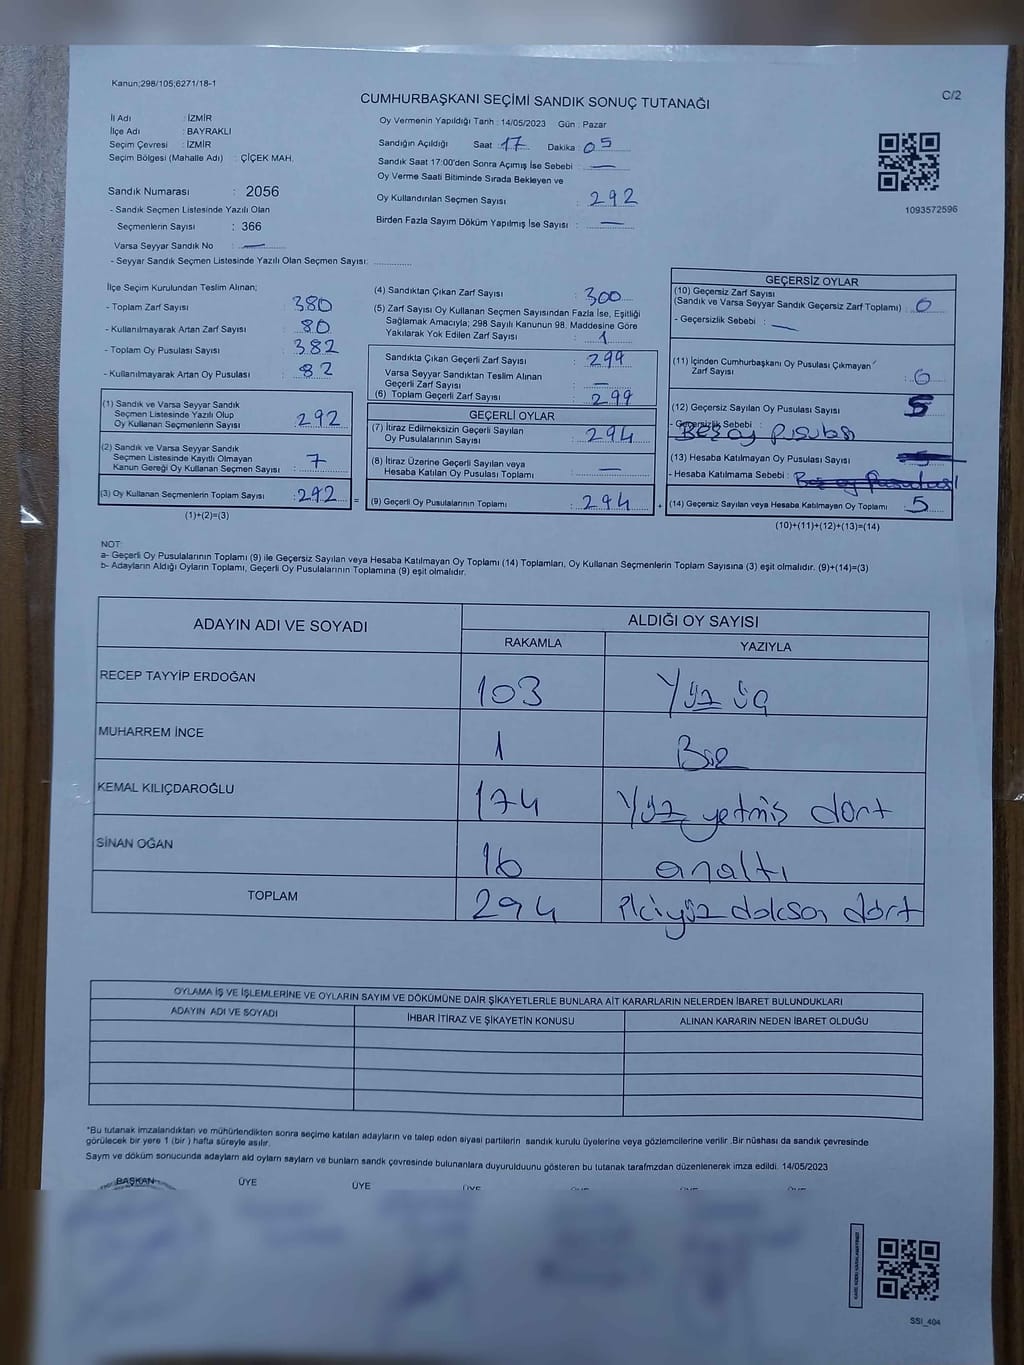 Kanun;298/105;6271/18-1
C/2
CUMHURBAŞKANI SEÇİMİ SANDIK SONUÇ TUTANAĞI
İl Adı : İZMİR
İlçe Adı : BAYRAKLI
Seçim Çevresi : İZMİR
Seçim Bölgesi (Mahalle Adı) : ÇİÇEK MAH.
Sandık Numarası : 2056
- Sandık Seçmen Listesinde Yazılı Olan
Seçmenlerin Sayısı : 366
Varsa Seyyar Sandık No : —
- Seyyar Sandık Seçmen Listesinde Yazılı Olan Seçmen Sayısı:
Oy Vermenin Yapıldığı Tarih : 14/05/2023 Gün : Pazar
Sandığın Açıldığı Saat : 17 Dakika : 05
Sandık Saat 17:00'den Sonra Açımış İse Sebebi : —
Oy Verme Saati Bitiminde Sırada Bekleyen ve
Oy Kullandırılan Seçmen Sayısı : 292
Birden Fazla Sayım Döküm Yapılmış İse Sayısı : —
1093572596
İlçe Seçim Kurulundan Teslim Alınan;
- Toplam Zarf Sayısı : 380
- Kullanılmayarak Artan Zarf Sayısı : 80
- Toplam Oy Pusulası Sayısı : 382
- Kullanılmayarak Artan Oy Pusulası : 82
(1) Sandık ve Varsa Seyyar Sandık
Seçmen Listesinde Yazılı Olup
Oy Kullanan Seçmenlerin Sayısı : 292
(2) Sandık ve Varsa Seyyar Sandık
Seçmen Listesinde Kayıtlı Olmayan
Kanun Gereği Oy Kullanan Seçmen Sayısı : 7
(3) Oy Kullanan Seçmenlerin Toplam Sayısı : 292 =
(1)+(2)=(3)
(4) Sandıktan Çıkan Zarf Sayısı : 300
(5) Zarf Sayısı Oy Kullanan Seçmen Sayısından Fazla İse, Eşitliği
Sağlamak Amacıyla; 298 Sayılı Kanunun 98. Maddesine Göre
Yakılarak Yok Edilen Zarf Sayısı : 1
Sandıkta Çıkan Geçerli Zarf Sayısı : 299
Varsa Seyyar Sandıktan Teslim Alınan
Geçerli Zarf Sayısı : —
(6) Toplam Geçerli Zarf Sayısı : 299
GEÇERLİ OYLAR
(7) İtiraz Edilmeksizin Geçerli Sayılan
Oy Pusulalarının Sayısı : 294
(8) İtiraz Üzerine Geçerli Sayılan veya
Hesaba Katılan Oy Pusulaları Toplamı : —
(9) Geçerli Oy Pusulalarının Toplamı : 294 +
GEÇERSİZ OYLAR
(10) Geçersiz Zarf Sayısı
(Sandık ve Varsa Seyyar Sandık Geçersiz Zarf Toplamı) : 0
- Geçersizlik Sebebi : —
(11) İçinden Cumhurbaşkanı Oy Pusulası Çıkmayan
Zarf Sayısı : 0
(12) Geçersiz Sayılan Oy Pusulası Sayısı : 5
- Geçersizlik Sebebi :
Boş oy pusulası
(13) Hesaba Katılmayan Oy Pusulası Sayısı :
- Hesaba Katılmama Sebebi : Boş oy pusulası
(14) Geçersiz Sayılan veya Hesaba Katılmayan Oy Toplamı : 5
(10)+(11)+(12)+(13)=(14)
NOT:
a- Geçerli Oy Pusulalarının Toplamı (9) ile Geçersiz Sayılan veya Hesaba Katılmayan Oy Toplamı (14) Toplamları, Oy Kullanan Seçmenlerin Toplam Sayısına (3) eşit olmalıdır. (9)+(14)=(3)
b- Adayların Aldığı Oyların Toplamı, Geçerli Oy Pusulalarının Toplamına (9) eşit olmalıdır.
ADAYIN ADI VE SOYADI
ALDIĞI OY SAYISI
RAKAMLA YAZIYLA
RECEP TAYYİP ERDOĞAN 103 Yüz üç
MUHARREM İNCE 1 Bir
KEMAL KILIÇDAROĞLU 174 Yüz yetmiş dört
SİNAN OĞAN 16 onaltı
TOPLAM 294 ikiyüz doksan dört
OYLAMA İŞ VE İŞLEMLERİNE VE OYLARIN SAYIM VE DÖKÜMÜNE DAİR ŞİKAYETLERLE BUNLARA AİT KARARLARIN NELERDEN İBARET BULUNDUKLARI
ADAYIN ADI VE SOYADI İHBAR İTİRAZ VE ŞİKAYETİN KONUSU ALINAN KARARIN NEDEN İBARET OLDUĞU
*Bu tutanak imzalandıktan ve mühürlendikten sonra seçime katılan adayların ve talep eden siyasi partilerin sandık kurulu üyelerine veya gözlemcilerine verilir .Bir nüshası da sandık çevresinde
görülecek bir yere 1 (bir ) hafta süreyle asılır.
Sayım ve döküm sonucunda adayların ald oyların sayların ve bunların sandk çevresinde bulunanlara duyurulduunu gösteren bu tutanak tarafmzdan düzenlenerek imza edildi. 14/05/2023
BAŞKAN ÜYE ÜYE ÜYE ÜYE ÜYE ÜYE
SSI_404